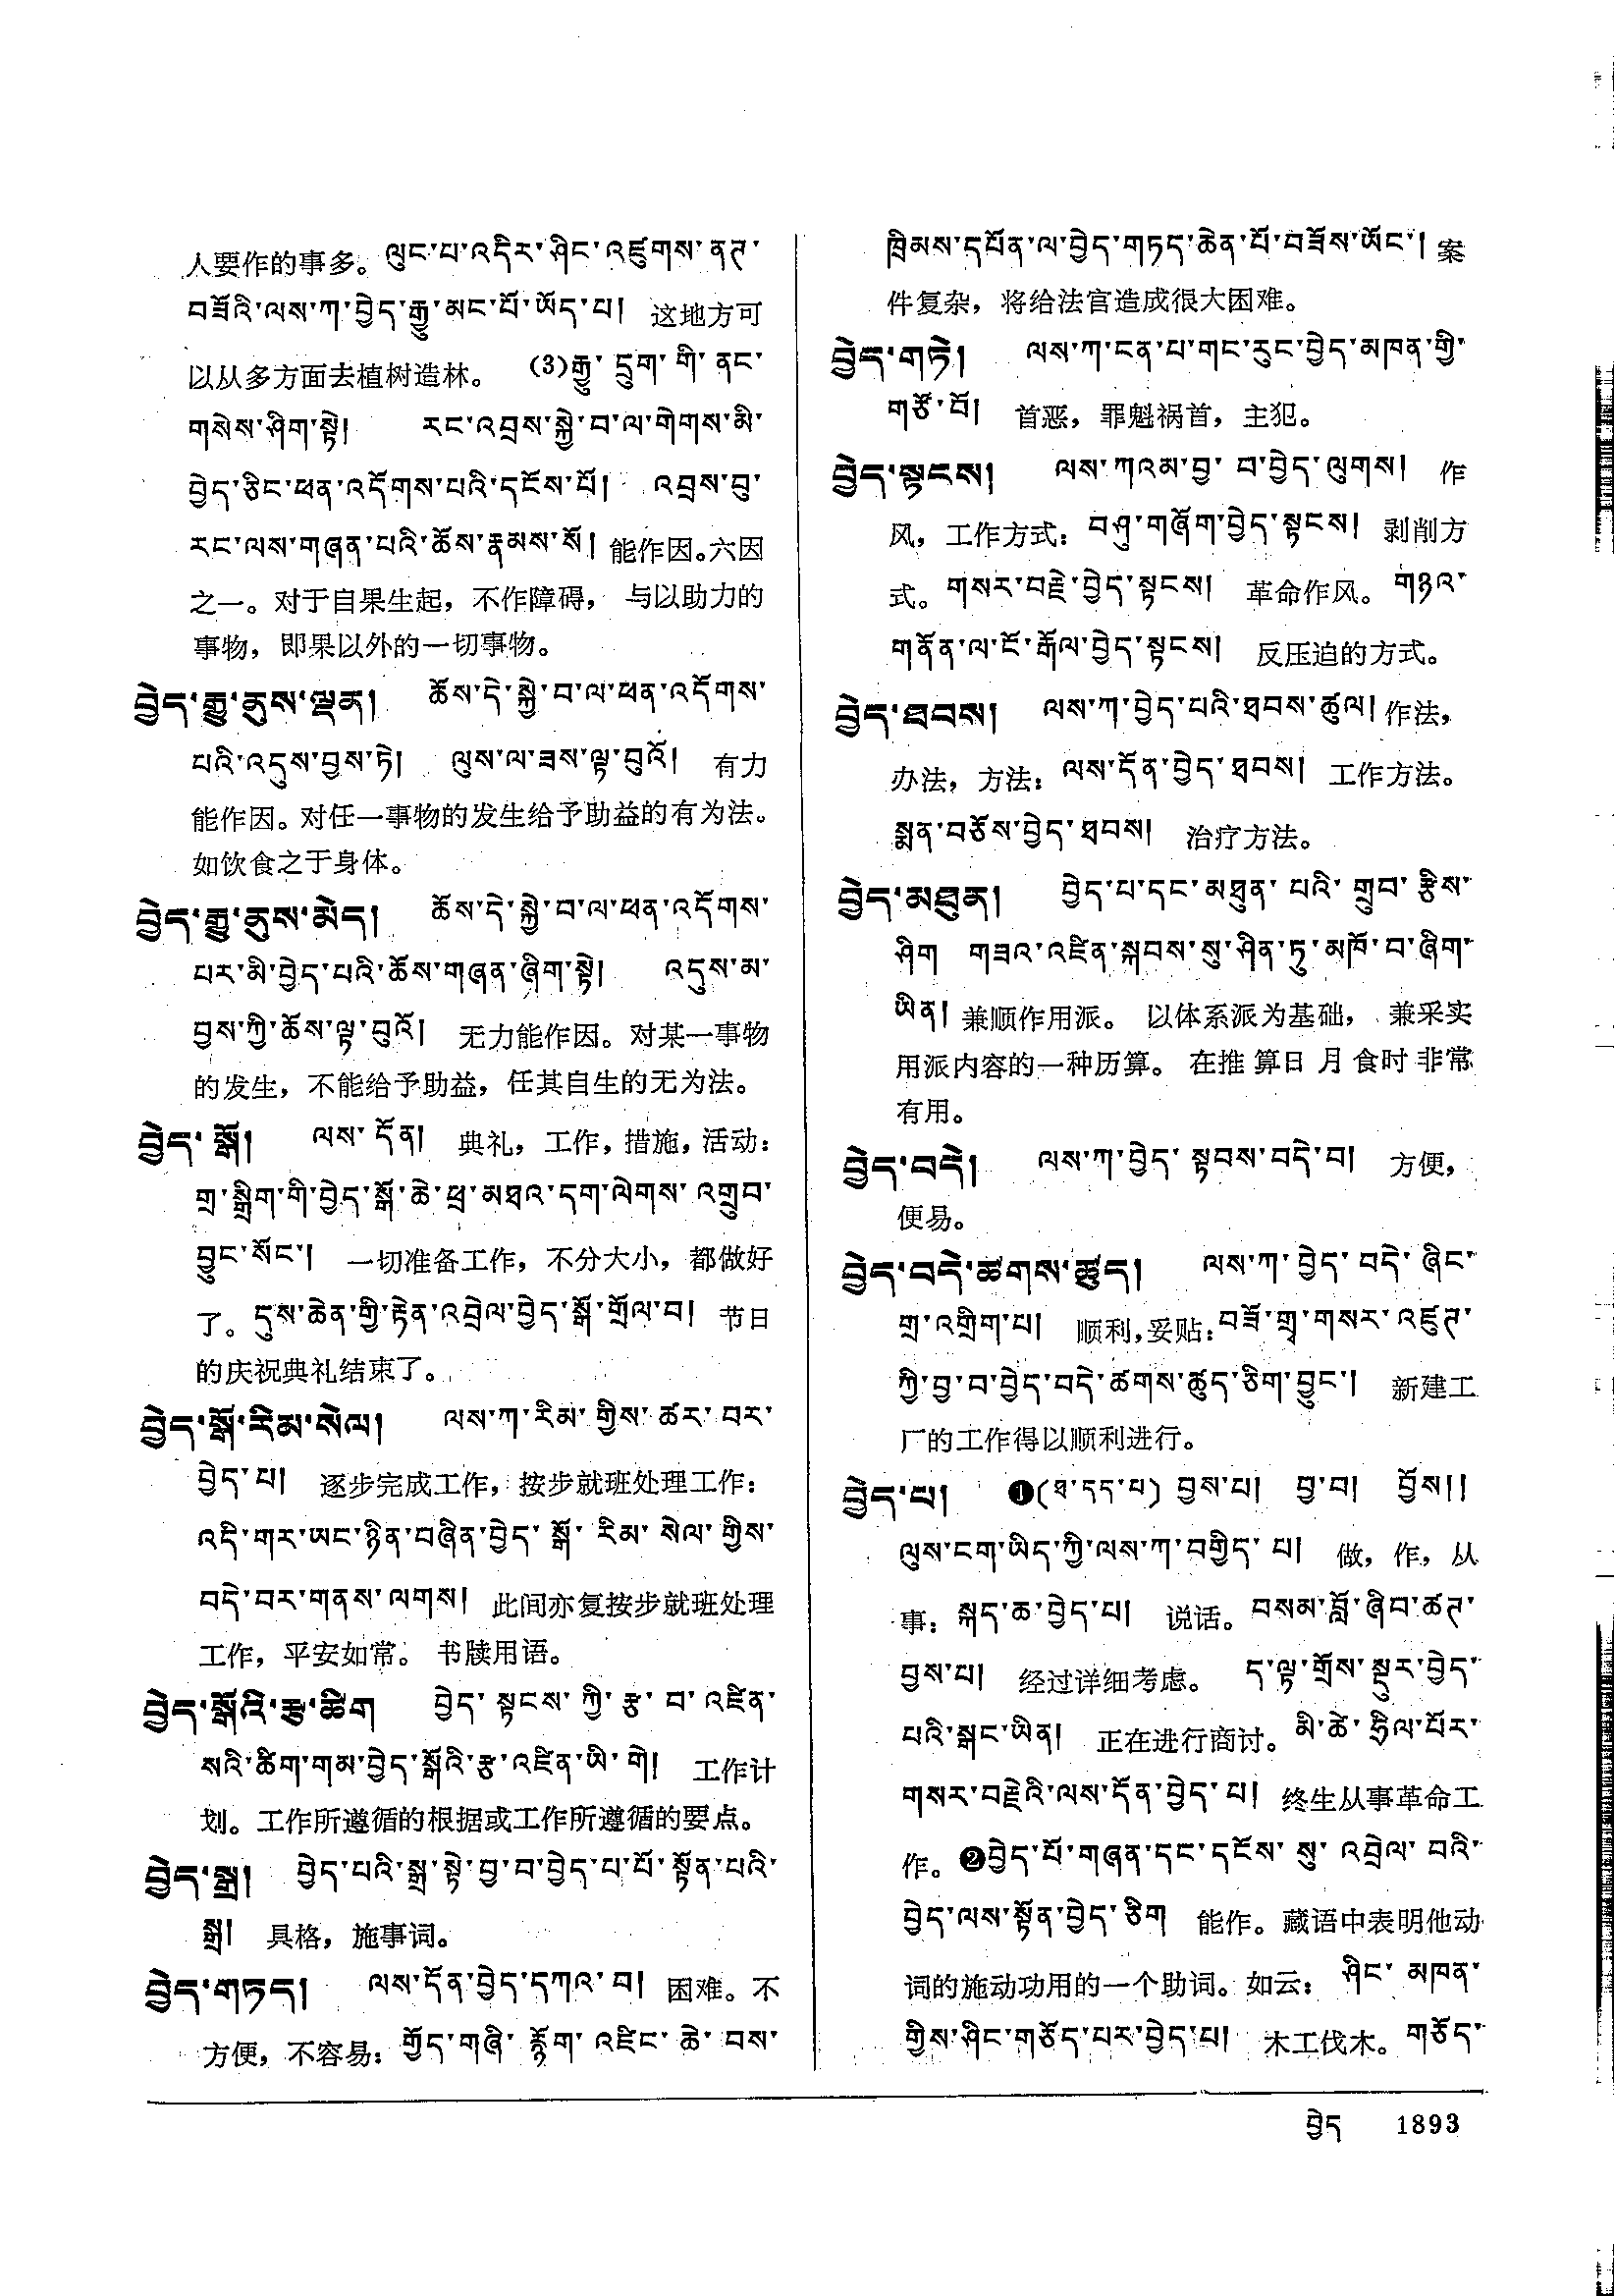 人要作的事多。 ལུང་པ་འདིར་ཤིང་འཛུགས་ནཊ་
བཟོའི་ལས་ཀ་བྱེད་རྒྱུ་མང་པོ་ཡོད་པ། 这地方可
以从多方面去植树造林。 (3)རྒྱུ་དྲུག་གི་ནང་
གསེས་ཤིག་སྟེ། རང་འབྲས་སྐྱེ་བ་ལ་གེགས་མི་
བྱེད་ཅིང་ཕན་འདོགས་པའི་དངོས་པོ། འབྲས་བུ་
རང་ལས་གཞན་པའི་ཆོས་རྣམས་སོ། 能作因。六因
之一。对于自果生起，不作障碍， 与以助力的
事物，即果以外的一切事物。
བྱེད་རྒྱུ་ནུས་ལྡན། ཆོས་དེ་སྐྱེ་བ་ལ་ཕན་འདོགས་
པའི་འདུས་བྱས་ཏེ། ལུས་ལ་ཟས་ལྟ་བུའོ། 有力
能作因。对任一事物的发生给予助益的有为法。
如饮食之于身体。
བྱེད་རྒྱུ་ནུས་མེད། ཆོས་དེ་སྐྱེ་བ་ལ་ཕན་འདོགས་
པར་མི་བྱེད་པའི་ཆོས་གཞན་ཞིག་སྟེ། འདུས་མ་
བྱས་ཀྱི་ཆོས་ལྟ་བུའོ། 无力能作因。对某一事物
的发生，不能给予助益，任其自生的无为法。
བྱེད་སྒོ། ལས་དོན། 典礼，工作，措施，活动：
གྲ་སྒྲིག་གི་བྱེད་སྒོ་ཆེ་ཕྲ་མཐའ་དག་ལེགས་འགྲུབ་
བྱུང་སོང་། 一切准备工作，不分大小，都做好
了。 དུས་ཆེན་གྱི་རྟེན་འབྲེལ་བྱེད་སྒོ་གྲོལ་བ། 节日
的庆祝典礼结束了。
བྱེད་སྒོ་རིམ་སེལ། ལས་ཀ་རིམ་གྱིས་ཚར་བར་
བྱེད་པ། 逐步完成工作，按步就班处理工作：
འདི་གར་ཨང་ཉིན་བཞིན་བྱེད་སྒོ་རིམ་སེལ་གྱིས་
བདེ་བར་གནས་ལགས། 此间亦复按步就班处理
工作，平安如常。 书牍用语。
བྱེད་སྒོའི་རྩ་ཚིག བྱེད་སྟངས་ཀྱི་རྩ་བ་འཛིན་
སའི་ཚིག་གམ་བྱེད་སྒོའི་རྩ་འཛིན་ཡི་གེ། 工作计
划。工作所遵循的根据或工作所遵循的要点。
བྱེད་སྒྲ། བྱེད་པའི་སྒྲ་སྟེ་བྱ་བ་བྱེད་པ་པོ་སྟོན་པའི་
སྒྲ། 具格，施事词。
བྱེད་གཏད། ལས་དོན་བྱེད་དཀའ་བ། 困难。不
方便，不容易： གྱོད་གཞི་རྙོག་འཛིང་ཆེ་བས་
ཁྲིམས་དཔོན་ལ་བྱེད་གཏད་ཆེན་པོ་བཟོས་ཡོང་། 案
件复杂，将给法官造成很大困难。
བྱེད་གཏེ། ལས་ཀ་ངན་པ་གང་རུང་བྱེད་མཁན་གྱི་
གཙོ་བོ། 首恶，罪魁祸首，主犯。
བྱེད་སྟངས། ལས་ཀའམ་བྱ་བ་བྱེད་ལུགས། 作
风，工作方式： བཤུ་གཞོག་བྱེད་སྟངས། 剥削方
式。 གསར་བརྗེ་བྱེད་སྟངས། 革命作风。 གཉའ་
གནོན་ལ་ངོ་རྒོལ་བྱེད་སྟངས། 反压迫的方式。
བྱེད་ཐབས། ལས་ཀ་བྱེད་པའི་ཐབས་ཚུལ། 作法，
办法，方法： ལས་དོན་བྱེད་ཐབས། 工作方法。
སྨན་བཅོས་བྱེད་ཐབས། 治疗方法。
བྱེད་མཐུན། བྱེད་པ་དང་མཐུན་པའི་གྲུབ་རྩིས་
ཤིག གཟའ་འཛིན་སྐབས་སུ་ཤིན་ཏུ་མཁོ་བ་ཞིག་
ཡིན། 兼顺作用派。 以体系派为基础， 兼采实
用派内容的一种历算。 在推算日月食时非常
有用。
བྱེད་བདེ། ལས་ཀ་བྱེད་སྟབས་བདེ་བ། 方便，
便易。
བྱེད་བདེ་ཚགས་ཚུད། ལས་ཀ་བྱེད་བདེ་ཞིང་
གྲ་འགྲིག་པ། 顺利，妥贴： བཟོ་གྲྭ་གསར་འཛུཊ་
ཀྱི་བྱ་བ་བྱེད་བདེ་ཚགས་ཚུད་ཅིག་བྱུང་། 新建工
厂的工作得以顺利进行。
བྱེད་པ། ❶(ཐ་དད་པ) བྱས་པ། བྱ་བ། བྱོས།།
ལུས་ངག་ཡིད་ཀྱི་ལས་ཀ་བགྱིད་པ། 做，作，从
事： སྐད་ཆ་བྱེད་པ། 说话。 བསམ་བློ་ཞིབ་ཚཊ་
བྱས་པ། 经过详细考虑。 ད་ལྟ་གྲོས་སྡུར་བྱེད་
པའི་སྒང་ཡིན། 正在进行商讨。 མི་ཚེ་ཧྲིལ་པོར་
གསར་བརྗེའི་ལས་དོན་བྱེད་པ། 终生从事革命工
作。 ❷བྱེད་པོ་གཞན་དང་དངོས་སུ་འབྲེལ་བའི་
བྱེད་ལས་སྟོན་བྱེད་ཅིག 能作。藏语中表明他动
词的施动功用的一个助词。如云： ཤིང་མཁན་
གྱིས་ཤིང་གཅོད་པར་བྱེད་པ། 木工伐木。 གཅོད་
བྱེད 1893